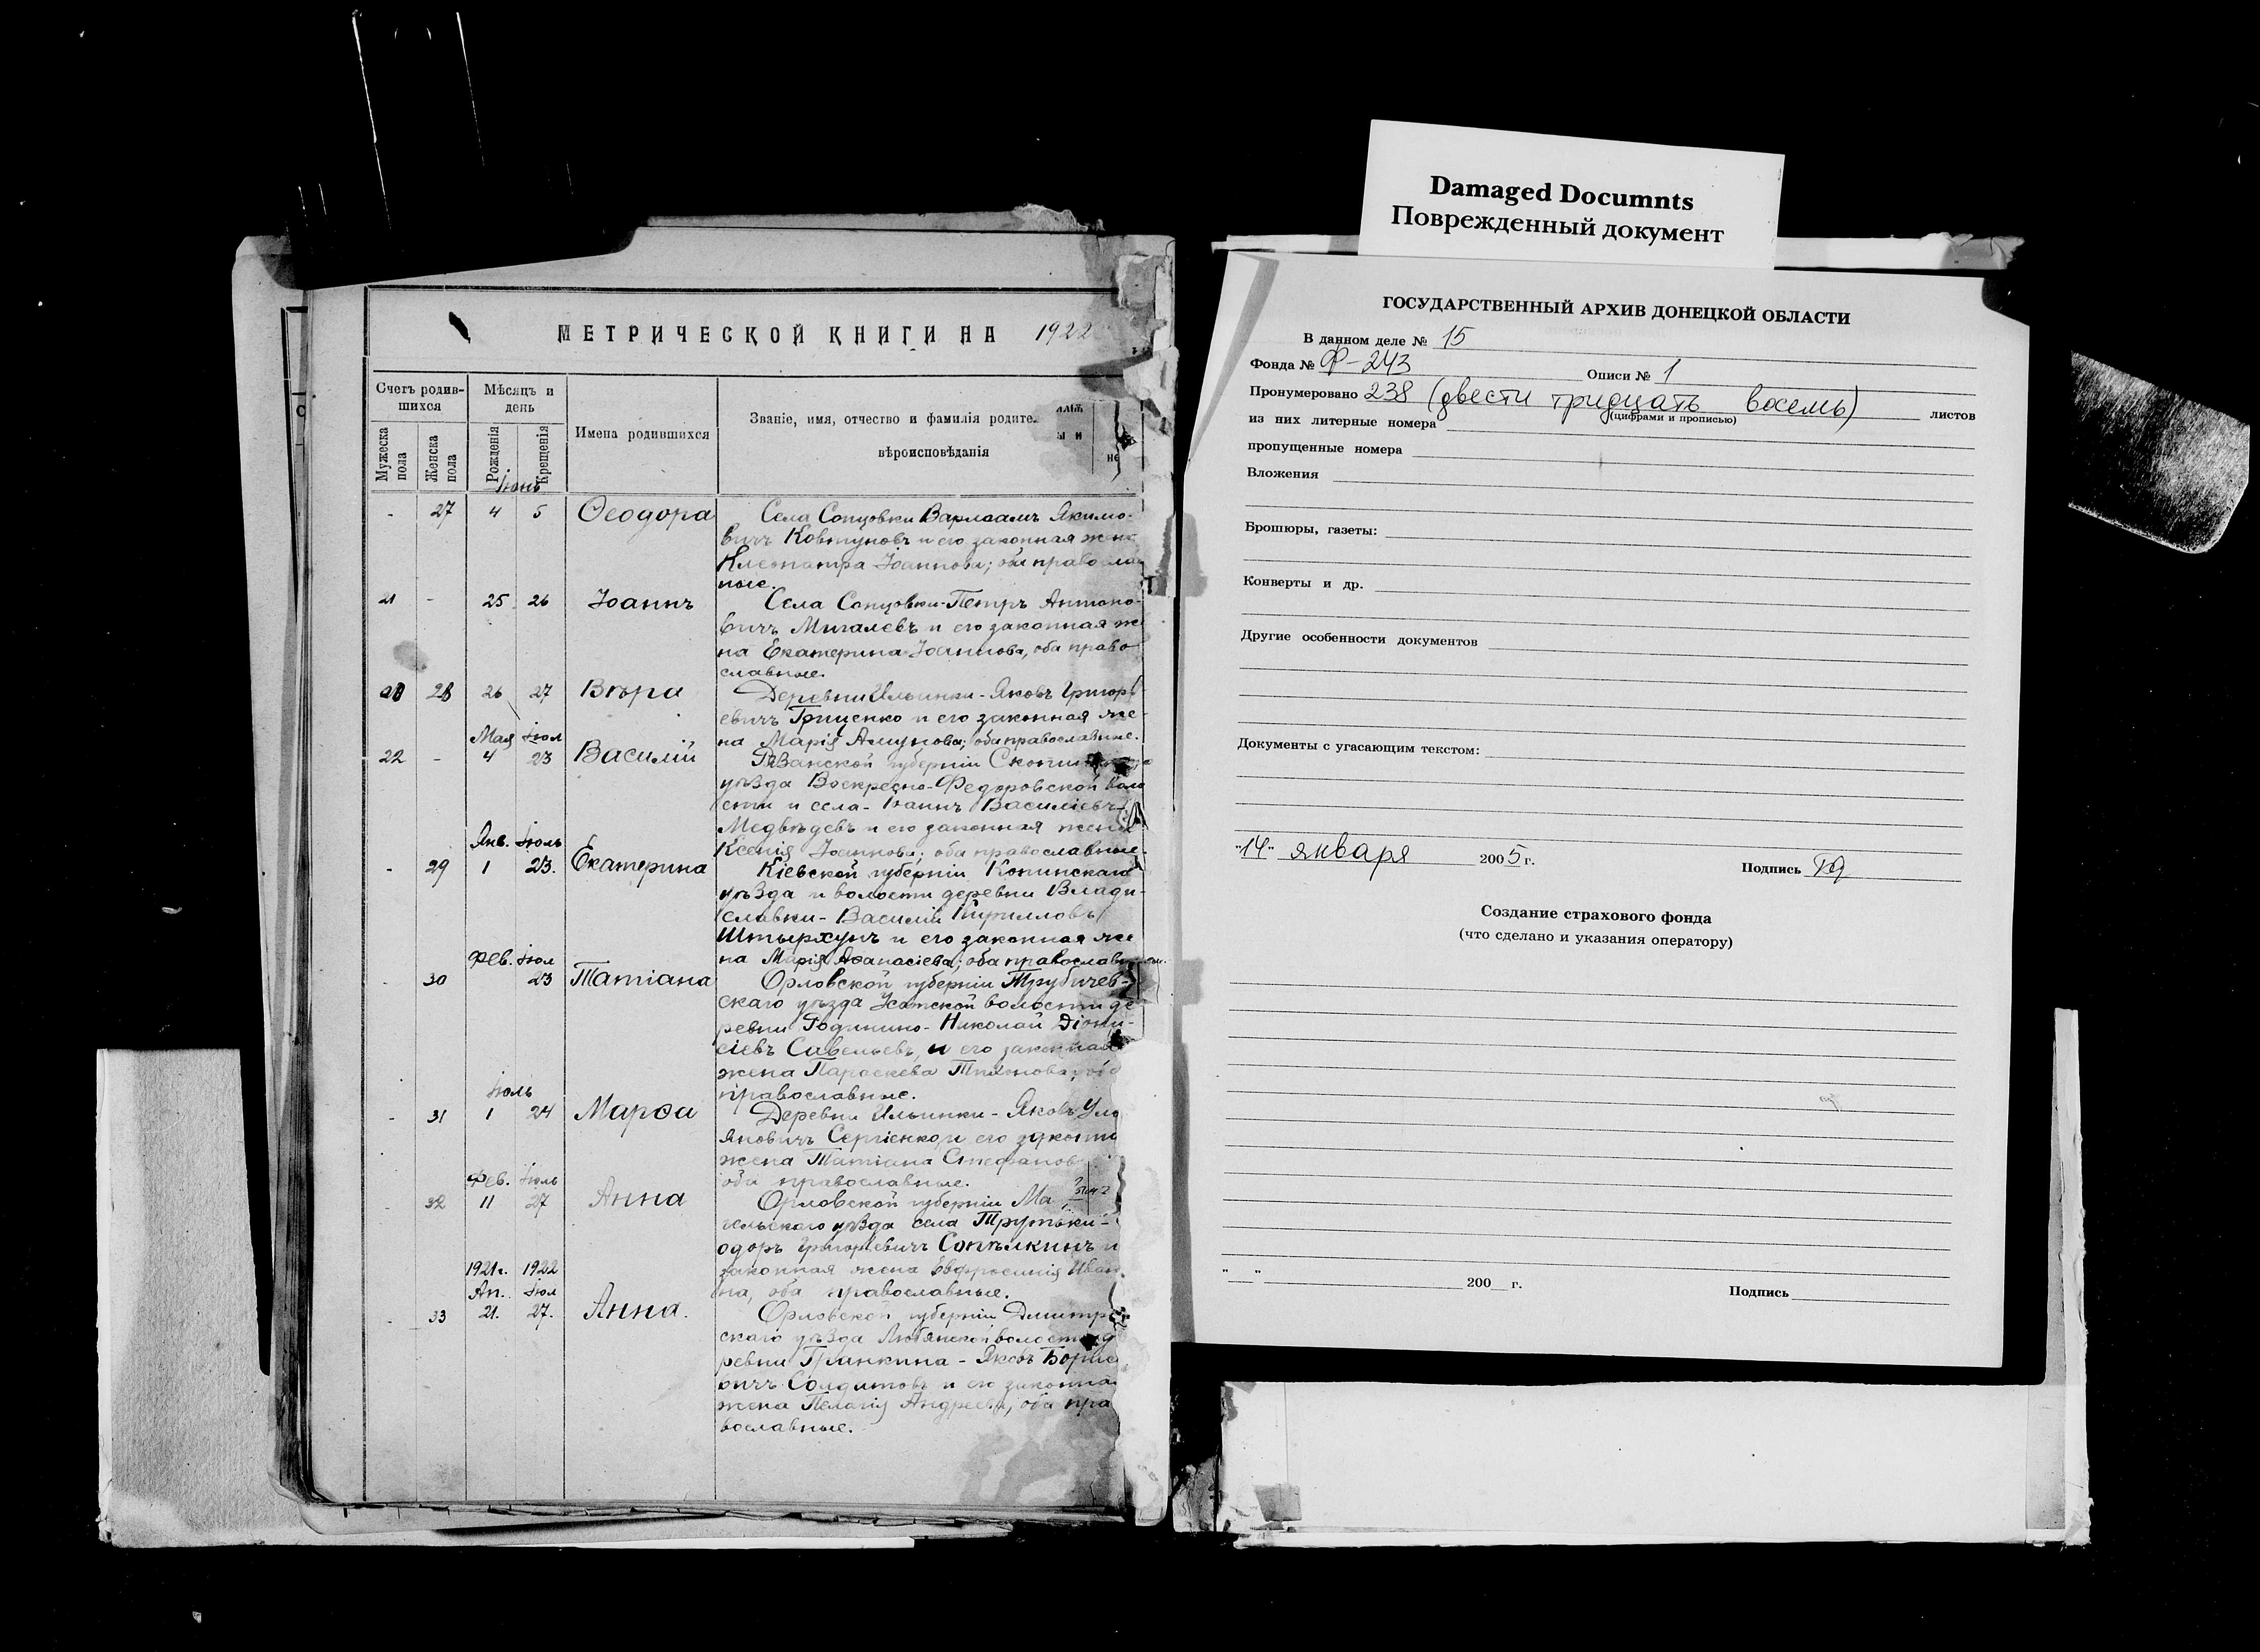 Damaged Documnts
Поврежденный документ
МЕТРИЧЕСКОЙ КНИГИ НА 1922
Счетъ родив-
шихся
Мѣсяцъ и
день
Имена родившихся
Званіе, имя, отчество и фамилія родите
вѣроисповѣданія
Мужеска
пола
Женска
пола
Рожденія
Крещенія
Іюнь
- 27 4 5 Ѳеодора Села Сонцовки Варлаамъ Якимо-
вичъ Ковтуновъ и его законная жена
Клеопатра Іоаннова; оба правосла
ные.
21 - 25 26 Іоаннъ Села Сонцовки-Петръ Антоно-
вичъ Мигалевъ и его законная же
на Екатерина Іоаннова, оба право
славные.
28 26 27 Вѣра Деревни Ильинки - Яковъ Григорь
евичъ Гриценко и его законная же-
на Марія; оба православные.
Мая Іюл
22 - 4 23 Василій Рязанской губерніи
уѣзда Воскресно-Федоровской воло
сти и села - Іоаннъ Василіевъ
Медвѣдевъ и его законная жена
Ксенія Іоаннова; оба православные.
Янв. Іюль
- 29 1 23. Екатерина Кіевской губерніи
уѣзда и волости деревни Влади-
славки - Василій Кирилловъ
Штырхунъ и его законная же
на Марія Аѳанасіева; оба православн
Фев. Іюл
- 30 23 Татіана Орловской губерніи Трубчев-
скаго уѣзда волости де
ревни - Николай Діони-
сіевъ Савельевъ, и его законная
жена Параскева оба
православные.
Іюль
- 31 1 24 Марѳа Деревни Ильинки - Яковъ Уль
яновичъ Сергіенко и его законна
жена Татіана Стефанов
оба православные.
Фев. Іюль
- 32 11 27 Анна Орловской губерніи Ма
гельскаго уѣзда села Трутовки -
одоръ Григорьевичъ Сопѣлкинъ и
законная жена Евфросинія Иван
на, оба православные.
1921г. 1922
Ап. Іюл
- 33 21. 27. Анна. Орловской губерніи Дмитро
скаго уѣзда волости д
ревни - Яковъ Борисо
вичъ Солдатовъ и его законна
жена Пелагія Андреева, оба пра
вославные.
ГОСУДАРСТВЕННЫЙ АРХИВ ДОНЕЦКОЙ ОБЛАСТИ
В данном деле № 15
Фонда № Ф-243 Описи № 1
Пронумеровано 238 (двести тридцать восемь) листов
(цифрами и прописью)
из них литерные номера
пропущенные номера
Вложения
Брошюры, газеты:
Конверты и др.
Другие особенности документов
Документы с угасающим текстом:
"14" января 2005г. Подпись
Создание страхового фонда
(что сделано и указания оператору)
"__" 200__г. Подпись